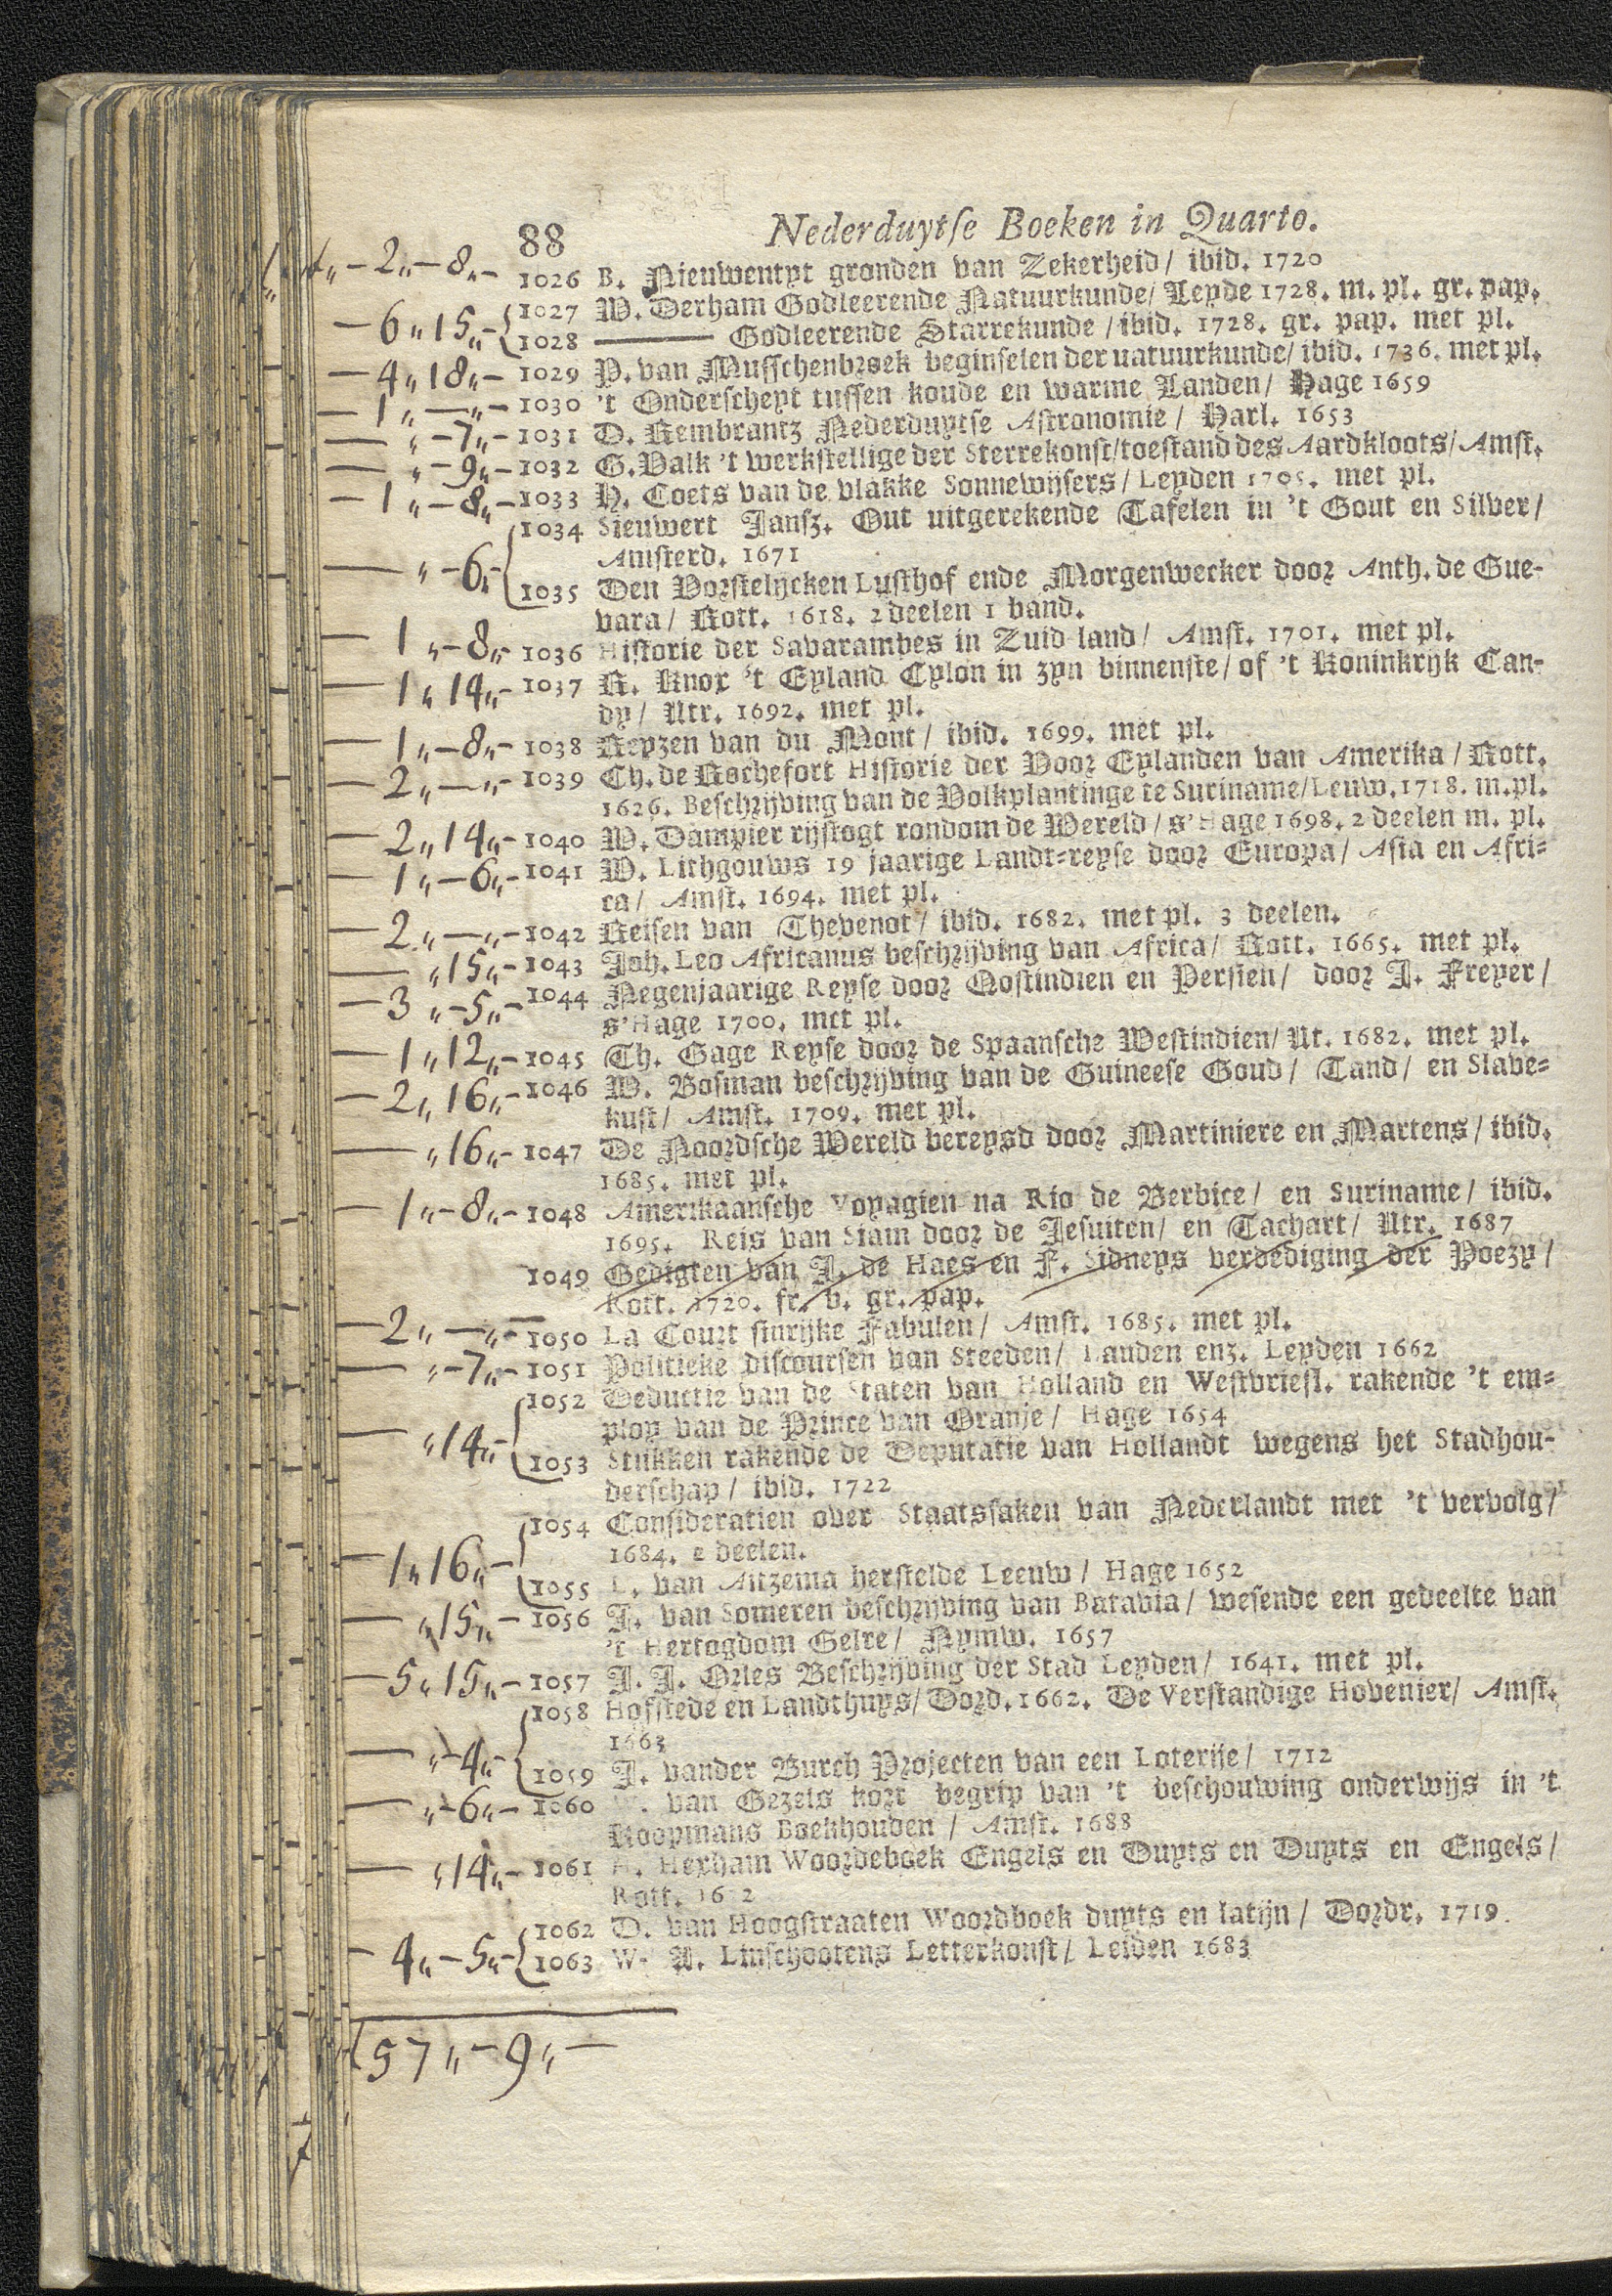 88 Nederduytse Boeken in Quarto.
2 „ – 8 „ – 1026 B. Nieuwentyt gronden van Zekerheid / ibid. 1720
6 „ 15 „ – { 1027 W. Derham Godleerende Natuurkunde / Leyde 1728. m. pl. gr. pap.
1028 ——— Godleerende Starrekunde / ibid. 1728. gr. pap. met pl.
4 „ 18 „ – 1029 P. van Musschenbroek beginselen der uatuurkunde / ibid. 1736. met pl.
1 „ – „ – 1030 't Onderscheyt tussen koude en warme Landen / Hage 1659
„ – 7 „ – 1031 D. Rembrantz Nederduytse Astronomie / Harl. 1653
„ – 9 „ – 1032 G. Valk 't werkstellige der Sterrekonst / toestand des Aardkloots / Amst.
1 „ – 8 „ – 1033 H. Coets van de vlakke Sonnewijsers / Leyden 1705. met pl.
1034 Sieuwert Jansz. Out uitgerekende Tafelen in 't Gout en Silver /
Amsterd. 1671
„ – 6 „ – { 1035 Den Vorstelijcken Lusthof ende Morgenwecker door Anth. de Gue-
vara / Rott. 1618. 2 deelen 1 band.
1 „ – 8 „ – 1036 Historie der Savarambes in Zuid land / Amst. 1701. met pl.
1 „ 14 „ – 1037 R. Knox 't Eyland Cylon in zyn binnenste / of 't Koninkryk Can-
dy / Utr. 1692. met pl.
1 „ – 8 „ – 1038 Reyzen van du Mont / ibid. 1699. met pl.
2 „ – „ – 1039 Ch. de Rochefort Historie der Voor Eylanden van Amerika / Rott.
1626. Beschrijving van de Volkplantinge te Suriname / Leuw. 1718. m. pl.
2 „ 14 „ – 1040 W. Dampier rijstogt rondom de Wereld / s'Hage 1698. 2 deelen m. pl.
1 „ – 6 „ – 1041 W. Lithgouws 19 jaarige Landt-reyse door Europa / Asia en Afri-
ca / Amst. 1694. met pl.
2 „ – „ – 1042 Reisen van Thevenot / ibid. 1682. met pl. 3 deelen.
„ 15 „ – 1043 Joh. Leo Africanus beschrijving van Africa / Rott. 1665. met pl.
3 „ – 5 „ – 1044 Negenjaarige Reyse door Oostindien en Persien / door J. Freyer /
s'Hage 1700. met pl.
1 „ 12 „ – 1045 Th. Gage Reyse door de Spaansche Westindien / Ut. 1682. met pl.
2 „ 16 „ – 1046 W. Bosman beschrijving van de Guineese Goud / Tand / en Slave-
kust / Amst. 1709. met pl.
„ 16 „ – 1047 De Noordsche Wereld bereysd door Martiniere en Martens / ibid.
1685. met pl.
1 „ – 8 „ – 1048 Amerikaansche Voyagien na Rio de Berbice / en Suriname / ibid.
1695. Reis van Siam door de Jesuiten / en Tachart / Utr. 1687
1049 Gedigten van J. de Haes en F. Sidneys verdediging der Poezy /
Rott. 1720. fr. b. gr. pap.
2 „ – „ – 1050 La Court sinrijke Fabulen / Amst. 1685. met pl.
„ – 7 „ – 1051 Politieke discoursen van Steeden / Landen enz. Leyden 1662
1052 Deductie van de Staten van Holland en Westvriesl. rakende 't em-
ploy van de Prince van Oranje / Hage 1654
„ 14 „ – { 1053 Stukken rakende de Deputatie van Hollandt wegens het Stadhou-
derschap / ibid. 1722
1054 Consideratien over Staatssaken van Nederlandt met 't vervolg /
1684. 2 deelen.
1 „ 16 „ – { 1055 L. van Aitzema herstelde Leeuw / Hage 1652
„ 15 „ – 1056 J. van Someren beschrijving van Batavia / wesende een gedeelte van
't Hertogdom Gelre / Nymw. 1657
5 „ 15 „ – 1057 J. J. Orles Beschrijving der Stad Leyden / 1641. met pl.
1058 Hofstede en Landthuys / Dord. 1662. De Verstandige Hovenier / Amst.
1663
„ – 4 „ – { 1059 J. vander Burch Projecten van een Loterije / 1712
„ – 6 „ – 1060 van Gezels kort begrip van 't beschouwing onderwijs in 't
Koopmans Boekhouden / Amst. 1688
„ 14 „ – 1061 H. Hexham Woordeboek Engels en Duyts en Duyts en Engels /
Rott.
1062 D. van Hoogstraaten Woordboek duyts en latijn / Dordr. 1719.
4 „ – 5 „ – { 1063 W. A. Linschootens Letterkonst / Leiden 1683
57 „ – 9 „ –